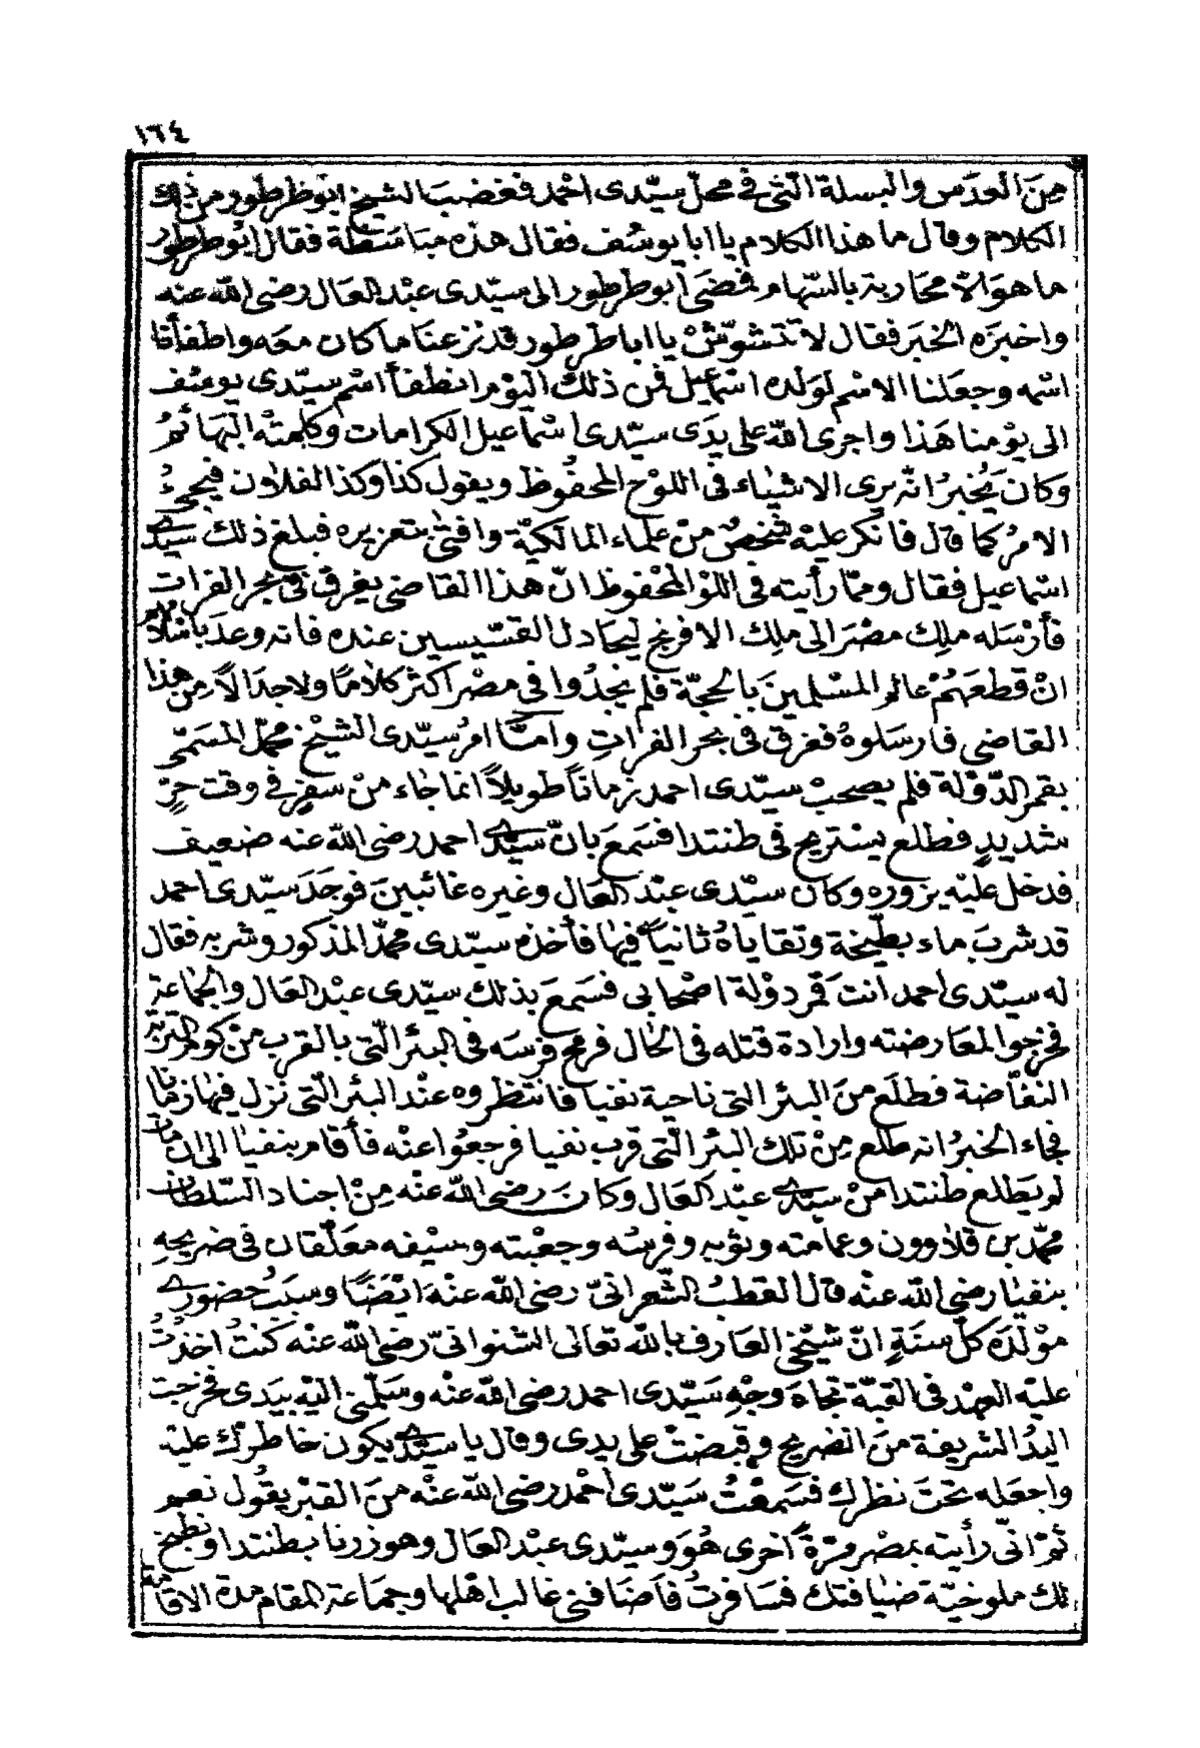 ١٦٤
مِنَ العدَس والبسلة الّتى في محلّ سيّدى احْمد فغضبَ الشيخ ابوظرطور من ذلك
الكلام وقال ما هذا الكلام يا ابا يوسُف فقال هذه مباسَطة فقال ابُوطرطور
ما هوَ الاّ محاربة بالسّهام فمضَى أبوطرطور الى سيّدى عبْد العَال رضى اللّه عنه
واخبرَه الخبَر فقال لا تتشوّشْ يا اباطرطور قد نزعنَا ما كان معَه واطفأنا
اسْمه وجعَلنا الاسْم لوَلده اسْماعيل فمن ذلكَ اليوْم انطفأ اسْم سيّدى يوسُف
الى يوْمنا هَذا واجرى اللّه على يدَى سيّدى اسْماعيل الكرامات وكلمتْه البَهائمُ
وكان يُخبرُ انّه يرى الاشيَاء فى اللوْح المحْفُوظ ويقول كذا وكذا لفلاون فيجىءُ
الامرُ كما قال فانكر عليْه شخصٌ من علماء المالكيّة وافتى بتعزيره فبلغ ذلك سيّدى
اسْماعيل فقال وممّا رأيته فى اللوْ المحْفوظ انّ هذا القاضى يغرق فى بحر الفرات
فأرْسَله ملِك مصْرَ الى ملِك الافرنج ليجَادل القسّيسين عنده فانه وعدَ باسْلامه
انْ قطعَهُمْ عالم المسْلمينَ بالحجّة فلم يجدُوا فى مصْر اكثر كلامًا ولا جدَالاً من هذا
القاضى فارسَلوهُ فغرق فى بحر الفراتِ وامّا امرُ سيّدى الشيْخ محمّد المسَمّى
بقمر الدّوْلة فلم يصحبْ سيّدى احمد زمانًا طويلاً انما جَاء منْ سفرٍ فى وقت حرٍّ
شديدٍ فطلع يسْتريح فى طنتدا فسَمعَ بانّ سيّدى احمد رضى اللّه عنه ضعيف
فدخل عليْه يزوره وكان سيّدى عبْد العَال وغيره غائبينَ فوجَدَ سيّدى احمد
قد شربَ ماء بطّيخة وتقاياهُ ثانيًا فيهَا فأخذه سيّدى محمّد المذكور وشربه فقال
له سيّدى احمد انت قمر دوْلة اصْحابى فسَمعَ بذلك سيّدى عبْد العَال والجماعة
فخرجوا لمعَارضته وارادة قتله فى الحَال فرمح فرسَه فى البئر الّتى بالقرب منْ كوم التربة
النفّاضة فطلَع منَ البئر التى ناحية نفيا فانتظروه عنْد البئر الّتى نزل فيهَا زمانًا
فجاء الخبرُ انه طلع مِنْ تلك البئر الّتى قرب نفيا فرجعُوا عنْه فأقام بنفيَا الى ان مات
لم يَطلع طنتدا منْ سيّدى عبْد العَال وكانَ رضى اللّه عنْه مِنْ اجناد السّلطان
محمّد بن قلاوون وعمامته وثوبه وفرسُه وجعْبته وسيْفه معَلّقان فى ضريحه
بنفيَا رضى اللّه عنْه قال القطبُ الشّعرانىّ رضى اللّه عنْه ايْضًا وسبَبُ حضورى
موْلدَه كلّ سنَةٍ انّ شيْخى العَارف باللّه تعَالى الشنوانىّ رضى اللّه عنْه كنتُ اخذتُ
عليْه العهْد فى القبّة تجاه وجْهِ سَيّدى احمد رضى اللّه عنْه وسَلّمنى اليْه بيَدى فخرجت
اليدُ الشريفة منَ الضريح وقبضتْ على يدى وقال يا سيّدى يكون خاطرك عليْه
واجعَله تحْتَ نظرك فسَمعْتُ سَيّدى احْمد رضى اللّه عنْه منَ القبْر يقُول نعم
ثمّ انّى رأيته بمصْر مرّةً اخرى هُوَ وسيّدى عبْد العَال وهو زرنا بطنتدا ونطبخ
لك ملوخيّة ضيَافتك فسَافرتُ فاضَافنى غالب اهْلها وجمَاعة المقام مدة الاقامة